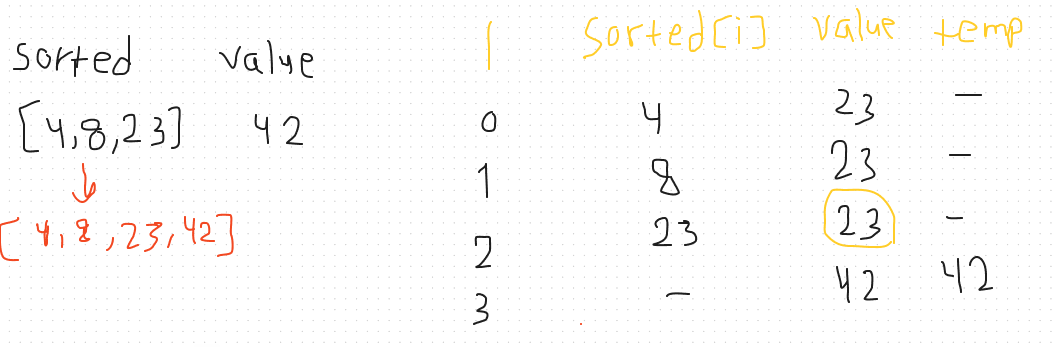 sorted value
[4,8,23] 42
[4,8,23,42]
i sorted[i] value temp
0 4 23 -
1 8 23 -
2 23 23 -
3 - 42 42